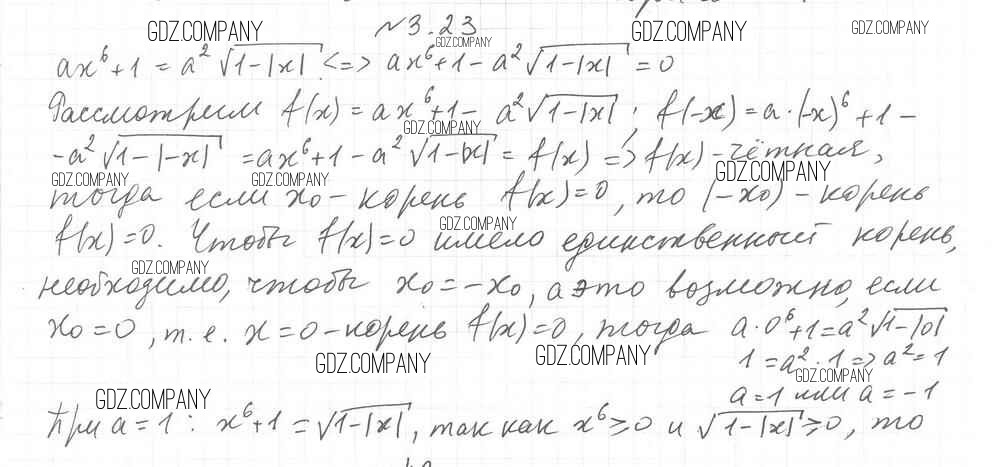 №3.23
GDZ.COMPANY GDZ.COMPANY GDZ.COMPANY
GDZ.COMPANY
ax⁶+1 = a²√(1-|x|) <=> ax⁶+1 - a²√(1-|x|) = 0
Рассмотрим f(x) = ax⁶+1 - a²√(1-|x|); f(-x) = a·(-x)⁶ + 1 -
GDZ.COMPANY
-a²√(1-|-x|) = ax⁶+1 - a²√(1-|x|) = f(x) => f(x) - чётная,
GDZ.COMPANY GDZ.COMPANY GDZ.COMPANY
тогда если x₀ - корень f(x)=0, то (-x₀) - корень
GDZ.COMPANY
f(x)=0. Чтобы f(x)=0 имело единственный корень,
GDZ.COMPANY
необходимо, чтобы x₀=-x₀, а это возможно, если
x₀=0, т.е. x=0-корень f(x)=0, тогда a·0⁶+1=a²√(1-|0|)
GDZ.COMPANY GDZ.COMPANY
1=a²·1 => a²=1
GDZ.COMPANY
a=1 или a=-1
GDZ.COMPANY
При a=1: x⁶+1 = √(1-|x|), так как x⁶⩾0 и √(1-|x|)⩾0, то